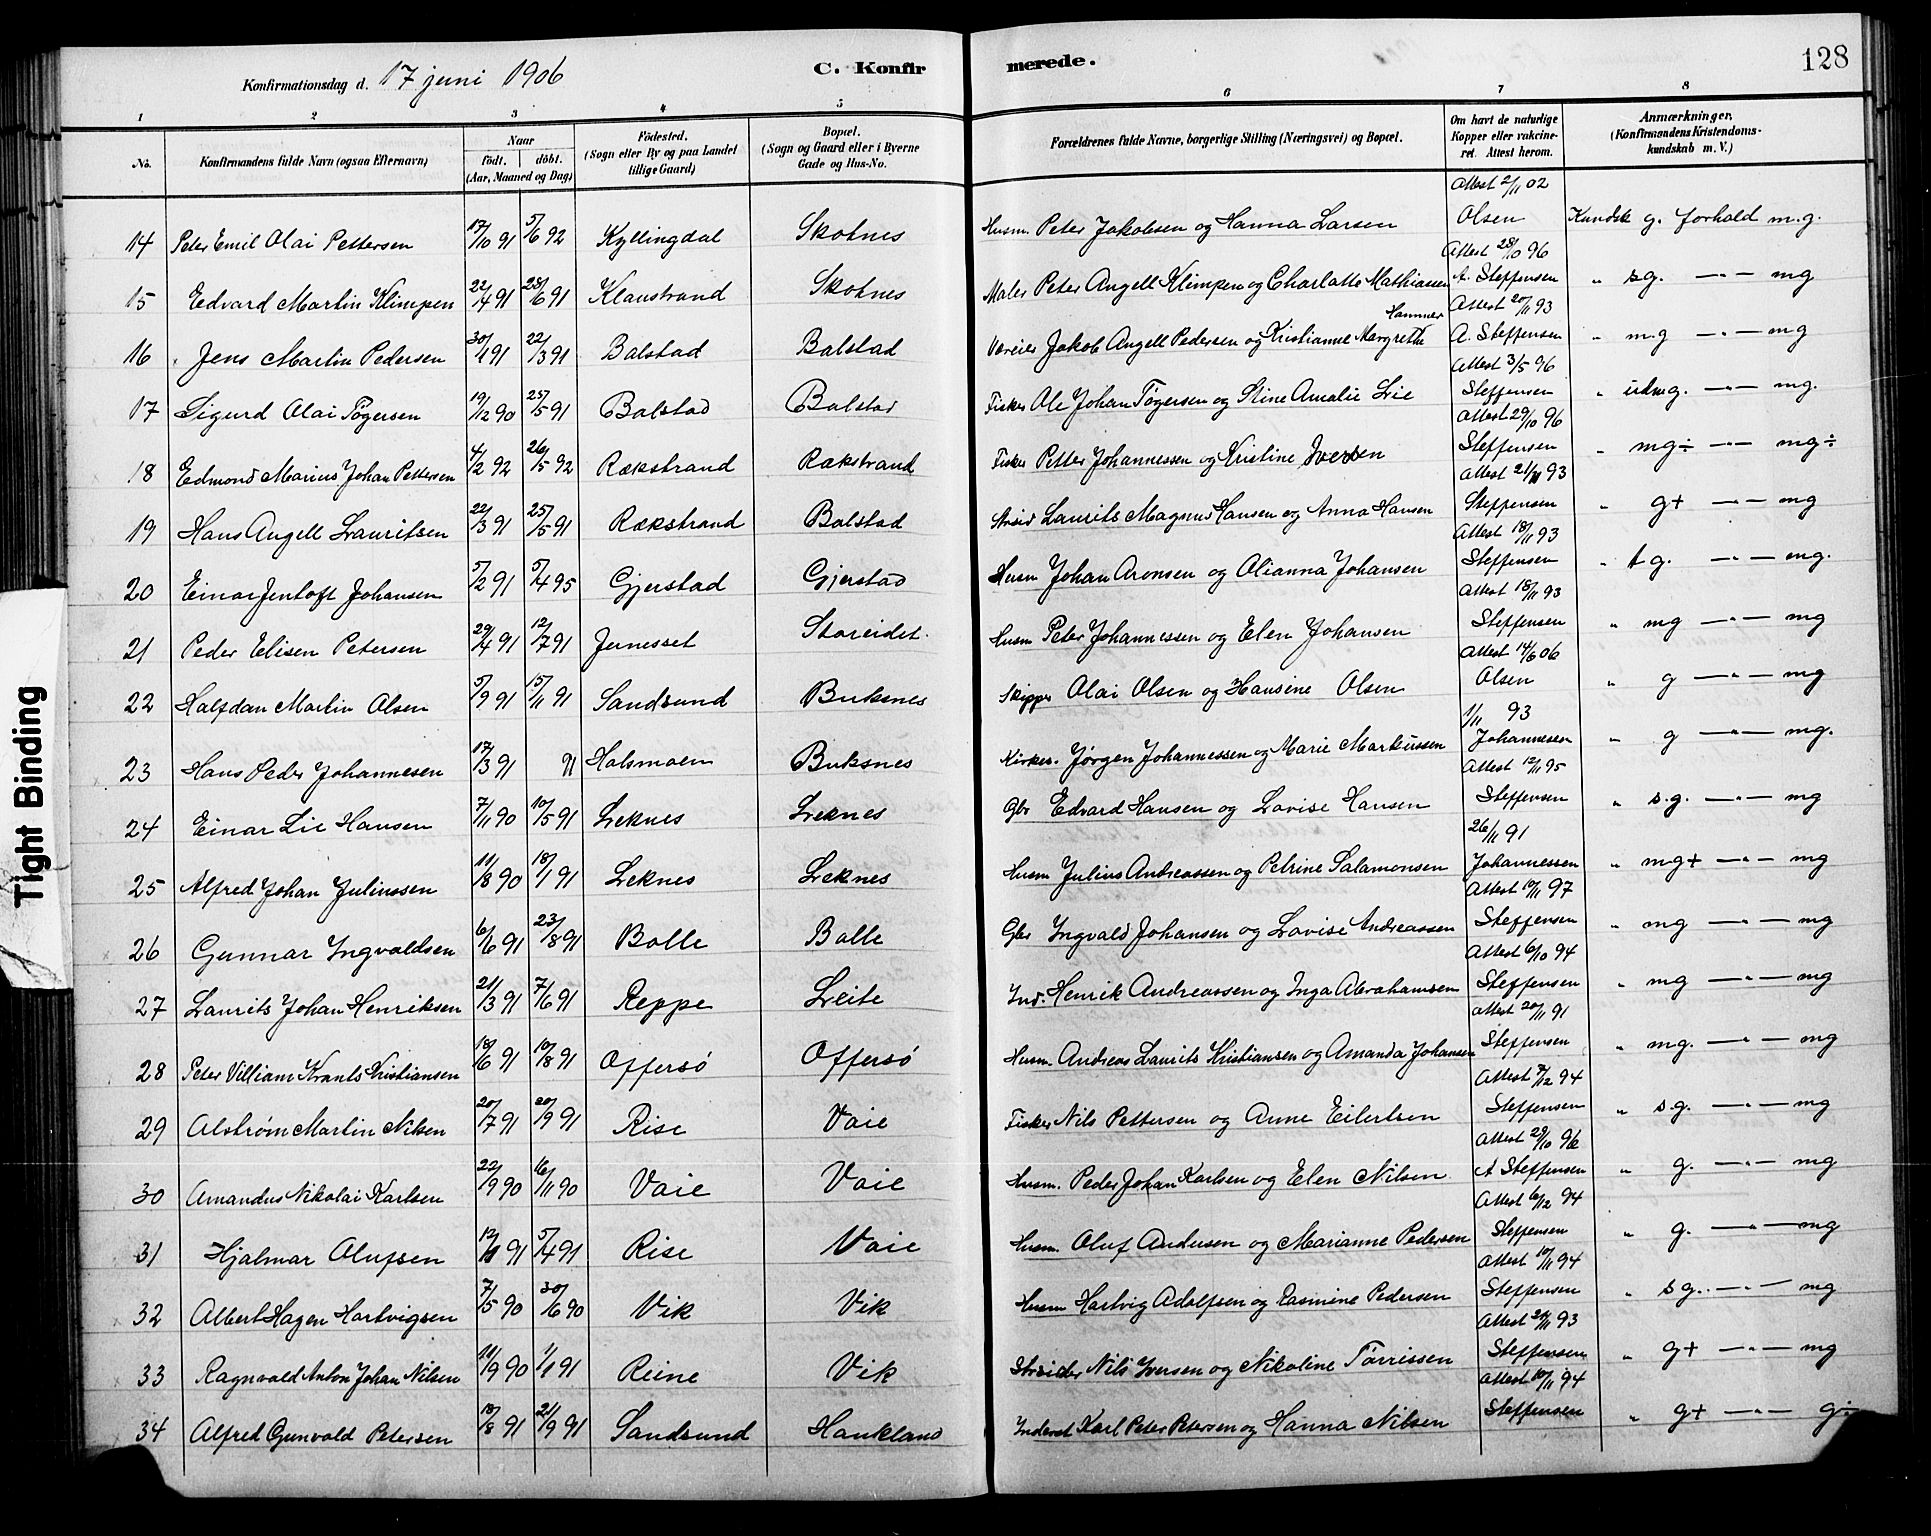 128
Konfirmationsdag d. 17 juni 1906 C. Konfirmerede.
1 2 3 4 5 6 7 8
No. Konfirmandens fulde Navn (ogsaa Efternavn) Naar födt. döbt. (Aar, Maaned og Dag) Födested. (Sogn eller By og paa Landet tillige Gaard) Bopæl. (Sogn og Gaard eller i Byerne Gade og Hus-No. Forældrenes fulde Navne, borgerlige Stilling (Næringsvei) og Bopæl. Om havt de naturlige Kopper eller vakcineret. Attest herom. Anmærkninger. (Konfirmandens Kristendomskundskab m. V.)
14 Peter Emil Olai Pettersen 17/10 91 5/6 92 Kyllingdal Skotnes Husm. Peter Jakobsen og Hanna Larsen Attest 2/11 02 Olsen Kundsk g. forhold m.g.
15 Edvard Martin Klimpen 22/4 91 28/6 91 Klaustrand Skotnes Maler Peter Angell Klimpen og Charlotte Mathiassen Attest 28/10 96 A. Steffensen " sg. —"— mg
16 Jens Martin Pedersen 30/1 91 22/3 91 Balstad Balstad Væreier Jakob Angell Pedersen og Kristianne Margrethe Hammer Attest 20/11 93 A. Steffensen " m.g —"— mg
17 Sigurd Olai Tøgersen 19/12 90 25/5 91 Balstad Balstad Fisker Ole Johan Tøgersen og Stine Amalie Lie Attest 3/5 96 Steffensen " udm.g. —"— mg.
18 Edmond Marius Johan Pettersen 4/2 92 26/5 92 Rækstrand Rækstrand Fisker Petter Johannessen og Kristine Iversen Attest 29/10 96 Steffensen " mg÷ —"— mg÷
19 Hans Angell Lauritsen 22/3 91 25/5 91 Rækstrand Balstad Strsid Laurits Magnus Hansen og Anna Hansen Attest 21/11 93 Steffensen " g+ —"— mg
20 Einar Jentoft Johansen 5/2 91 5/4 95 Gjerstad Gjerstad Husm Johan Aronsen og Olianna Johansen Attest 18/11 93 Steffensen " tg. —"— mg.
21 Peder Elisen Petersen 29/4 91 12/7 91 Jernesset Storeidet. Husm Peter Johannessen og Elen Johansen Attest 18/11 93 Steffensen " mg —"— mg
22 Halfdan Martin Olsen 5/9 91 15/11 91 Sandsund Buksnes Skipper Olai Olsen og Hansine Olsen Attest 14/6 06 Olsen " g —"— mg
23 Hans Peder Johannesen 17/3 91 91 Holsmoen Buksnes Kirkes. Jørgen Johannessen og Marie Markussen 1/11 93 Johannesen " g —"— mg.
24 Einar Lie Hansen 7/11 90 10/5 91 Leknes Leknes Gbr Edvard Hansen og Lovise Hansen Attest 12/11 95 Steffensen " s.g. —"— mg
25 Alfred Johan Juliussen 11/8 90 18/1 91 Leknes Leknes Husm Julius Andreassen og Petrine Salamonsen 26/11 91 Johannessen " mg+ —"— mg
26 Gunnar Ingvaldsen 6/6 91 23/8 91 Bolle Bolle Gbr Ingvald Johansen og Lovise Andreassen Attest 10/11 97 Steffensen " mg —"— mg
27 Laurits Johan Henriksen 21/3 91 7/6 91 Reppe Leite Ind. Henrik Andreassen og Inga Abrahamsen Attest 6/10 94 Steffensen " mg —"— mg
28 Peter Villiam Krants Kristiansen 18/6 91 10/8 91 Offersö Offersö Husm. Andreas Laurits Kristiansen og Amanda Johansen Attest 20/11 91 Steffensen " mg. —"— mg
29 Alstrøm Martin Nilsen 20/7 91 20/9 91 Rise Vaie Fisker Nils Pettersen og Anne Eilertsen Attest 7/12 94 Steffensen " sg. —"— mg
30 Amandus Nikolai Karlsen 22/9 90 16/11 90 Vaie Vaie Husm. Peder Johan Karlsen og Elen Nilsen Attest 29/10 96 A Steffensen " g. —"— mg
31 Hjalmar Olufsen 91 5/4 91 Rise Vaie Husm. Oluf Andusen og Marianne Pedersen Attest 6/12 94 Steffensen " g. —"— mg
32 Albert Hagen Hartvigsen 7/5 90 30/6 90 Vik Vik Husm Hartvig Adolfsen og Rasmine Pedersen Attest 10/11 94 Steffensen " sg. —"— mg
33 Ragnvald Anton Johan Nilsen 11/9 90 1/1 91 Reine Vik Strsider Nils Iversen og Nikoline Tørrissen Attest 93 Steffensen " g+ —"— mg
34 Alfred Gunvald Petersen 18/8 91 21/9 91 Sandsund Haukland Inderst Karl Peter Petersen og Hanna Nilsen Attest 10/11 94 Steffensen " g+ —"— g÷
Tight Binding